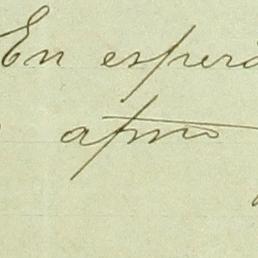 En espera
afmo